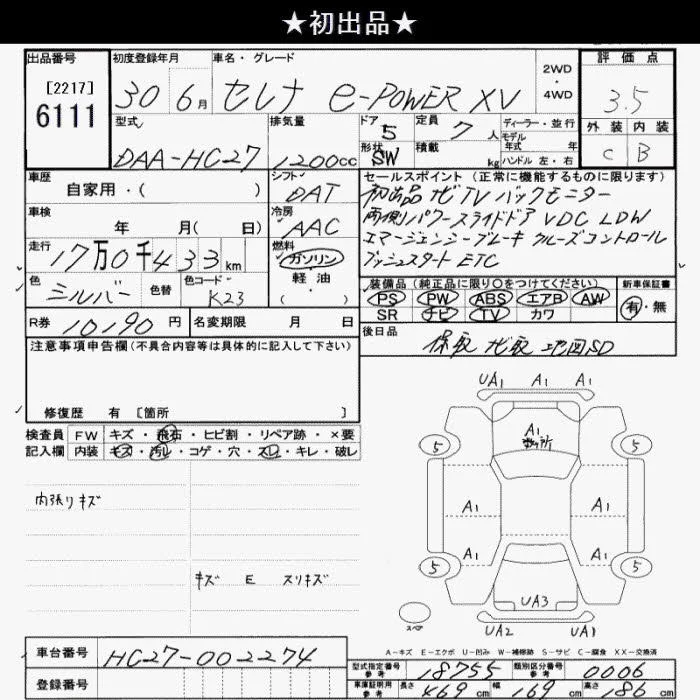 ★初出品★
出品番号
[2217]
6111
初度登録年月
30 6月
車名・グレード
セレナ e-POWER XV
2WD
・
4WD
評価点
3.5
外装 内装
C B
型式
DAA-HC27
排気量
1200cc
ドア 5
形状 SW
定員 7人
積載 kg
ディーラー・並行
モデル年式 年
ハンドル 左・右
車歴
自家用・( )
シフト
DAT
車検
年 月( 日)
冷房
AAC
走行
17万0千433km
燃料
ガソリン
軽油
( )
色
シルバー
色替
色コード
K23
セールスポイント (正常に機能するものに限ります)
初出品 ナビTV バックモニター
両側パワースライドドア VDC LDW
エマージェンシーブレーキ クルーズコントロール
プッシュスタート ETC
装備品 (純正品に限り○をつけてください)
PS PW ABS エアB AW
SR ナビ TV カワ
新車保証書
有・無
R券 10190円
名変期限 月 日
後日品
保取 ナ取 地図SD
注意事項申告欄(不具合内容等は具体的に記入して下さい)
修復歴 有 [箇所 ]
検査員記入欄
FW キズ・飛石・ヒビ割・リペア跡・×要
内装 キズ・汚レ・コゲ・穴・スレ・キレ・破レ
内張リキズ
キズ E スリキズ
UA1 A1 A1
A1
5 5
A1 A1
A1 A1
5 5
UA3
スペア
UA2 UA1
A-キズ E-エクボ U-凹み W-補修跡 S-サビ C-腐食 XX-交換済
車台番号
HC27-002274
登録番号
型式指定番号
参考
18755
類別区分番号
参考
0006
車庫証明用
参考
長さ 469cm 幅 169cm 高さ 186cm